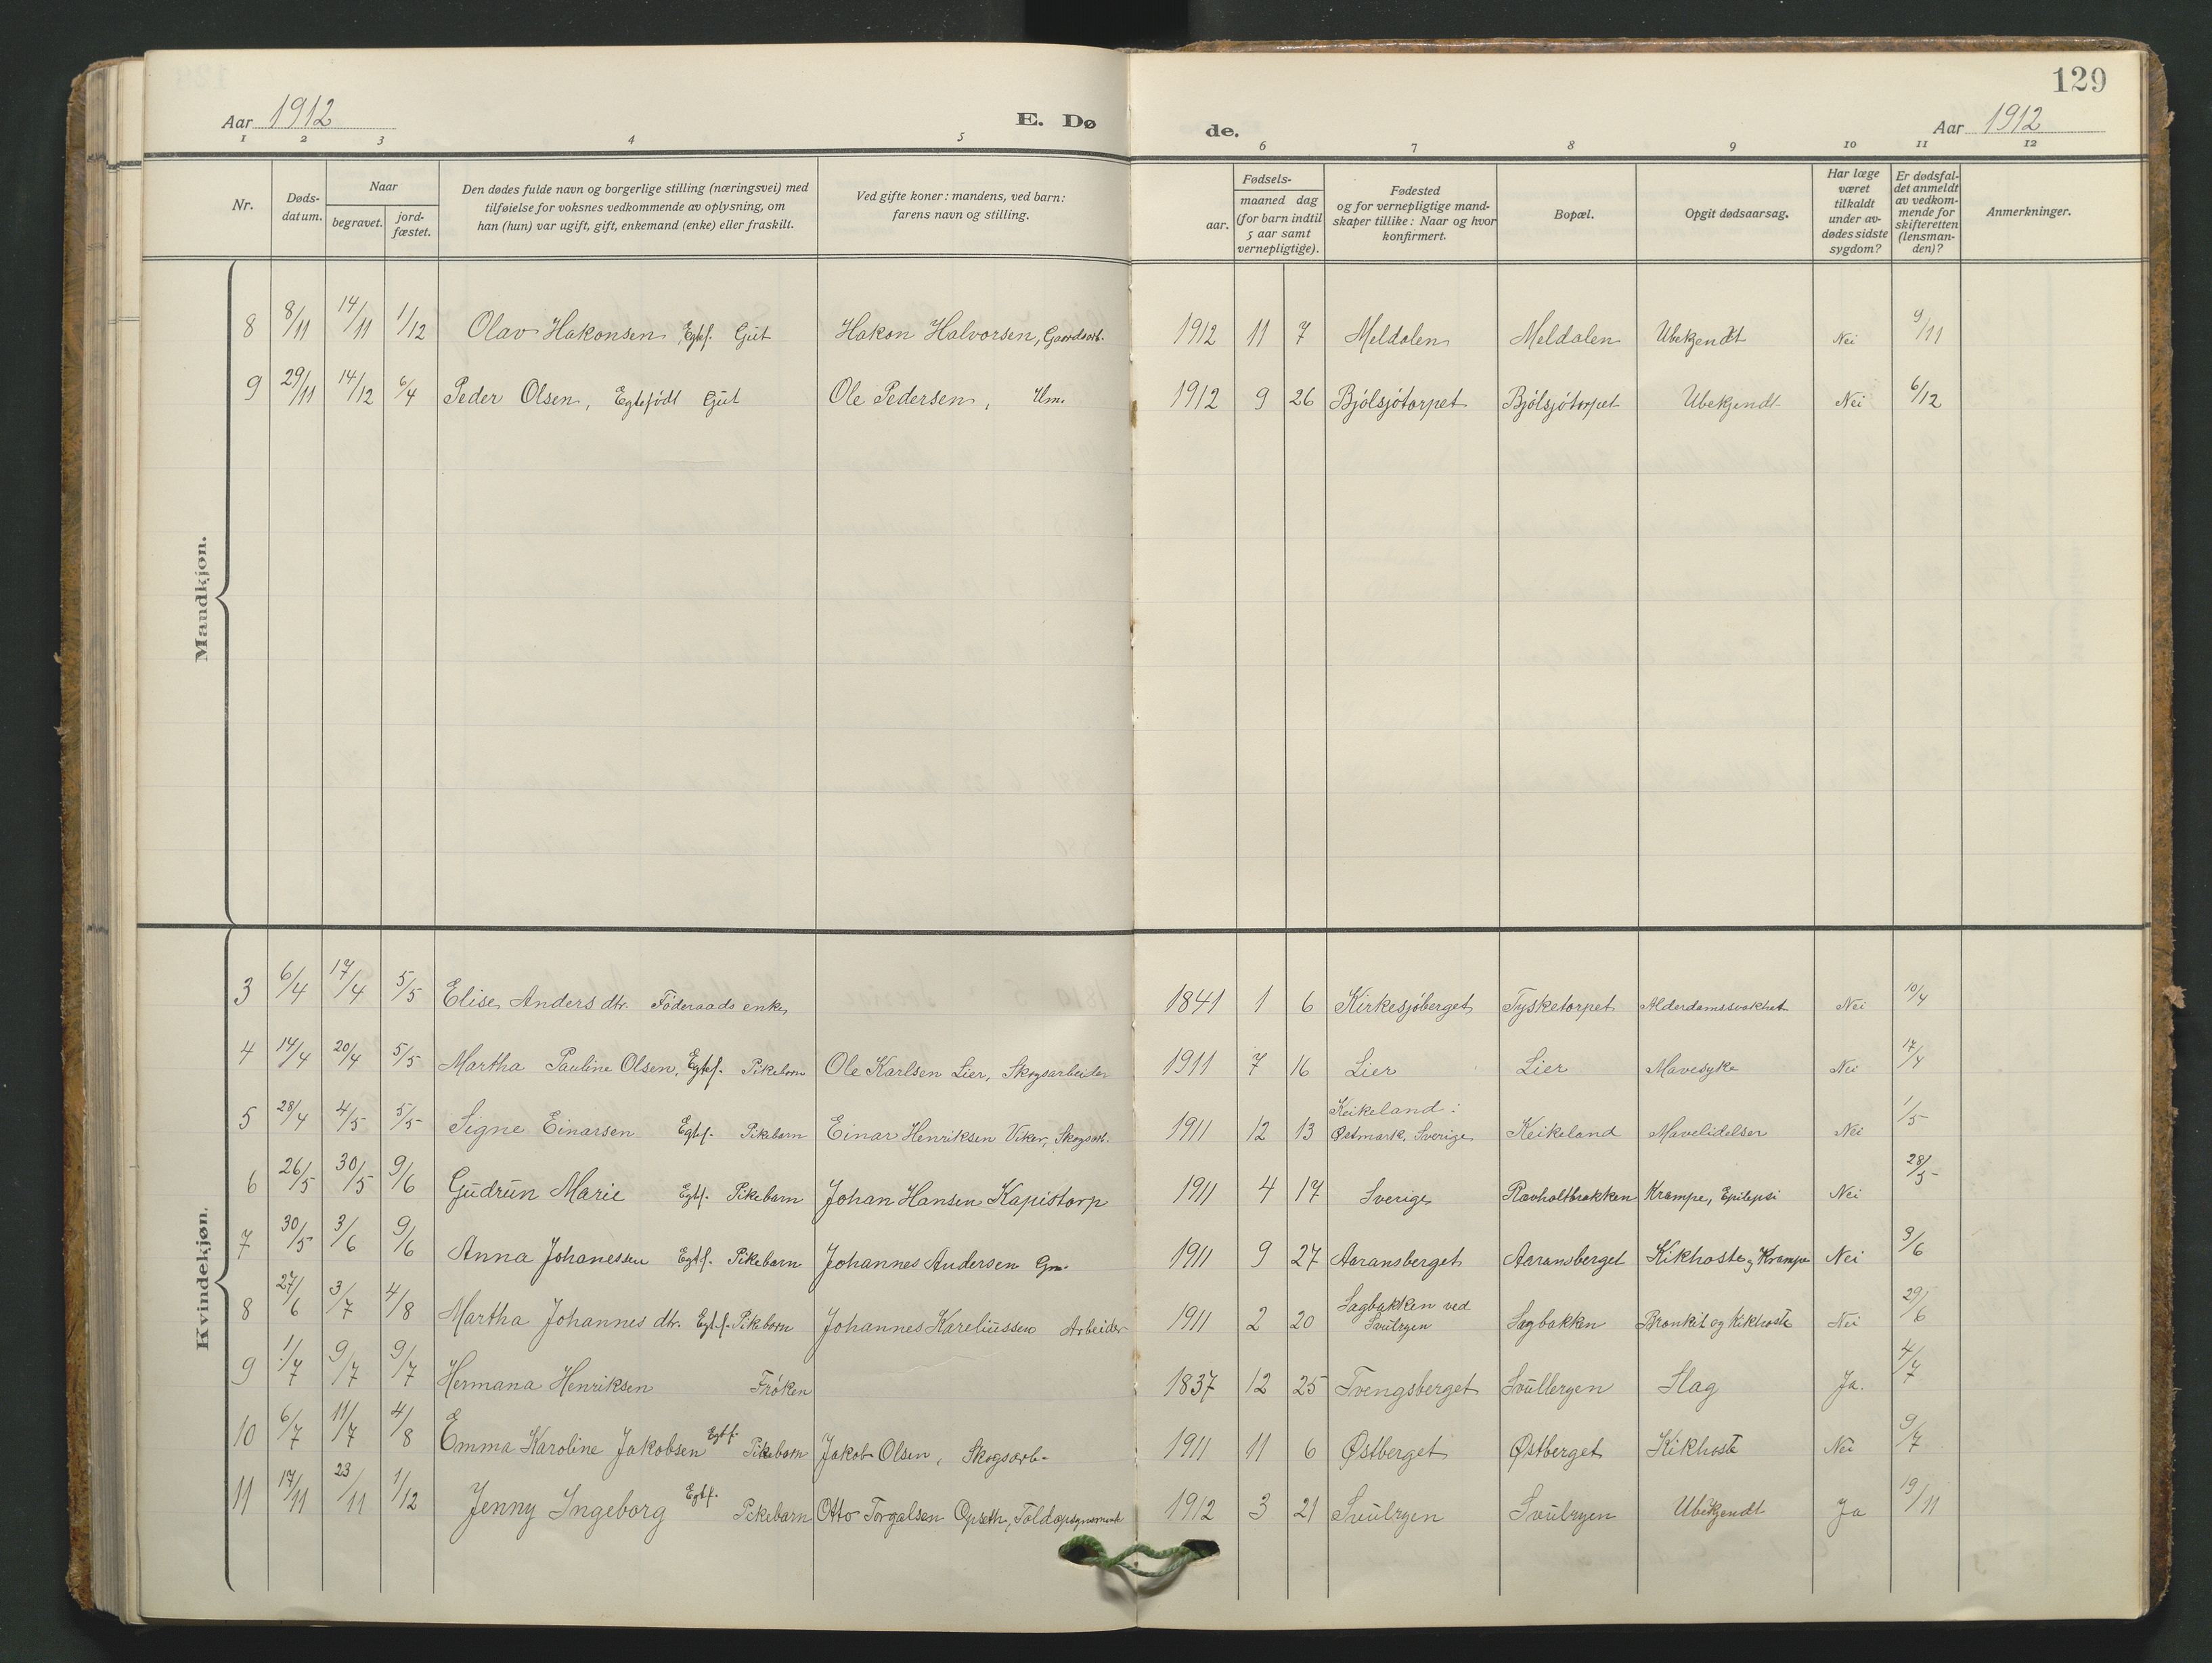 129
Aar 1912
E. Dø
de.
Aar 1912
1 2 3 4 5 6 7 8 9 10 11 12
Nr.
Døds-
datum.
Naar
begravet.
jord-
fæstet.
Den dødes fulde navn og borgerlige stilling (næringsvei) med
tilføielse for voksnes vedkommende av oplysning, om
han (hun) var ugift, gift, enkemand (enke) eller fraskilt.
Ved gifte koner: mandens, ved barn:
farens navn og stilling.
Fødsels-
aar.
maaned dag
(for barn indtil
5 aar samt
vernepligtige).
Fødested
og for vernepligtige mand-
skaper tillike: Naar og hvor
konfirmert.
Bopæl.
Opgit dødsaarsag.
Har læge
været
tilkaldt
under av-
dødes sidste
sygdom?
Er dødsfal-
det anmeldt
av vedkom-
mende for
skifteretten
(lensman-
den)?
Anmerkninger.
Mandkjøn.
8 8/11 14/11 1/12 Olav Hakonsen Egtf. Gut Hakon Halvorsen, Gaardsarb. 1912 11 7 Meldalen Meldalen Ubekjendt Nei 9/11
9 29/11 14/12 6/4 Peder Olsen, Egtefödt Gut Ole Pedersen, Um. 1912 9 26 Bjölsjötorpet Bjölsjötorpet Ubekjendt Nei 6/12
Kvindekjøn.
3 6/4 17/4 5/5 Elise Anders dtr. Föderaads enke 1841 1 6 Kirkesjöberget Tysketorpet Alderdomssvakhet Nei 10/4
4 14/4 20/4 5/5 Martha Pauline Olsen, Egtef. Pikebarn Ole Karlsen Lier, Skogsarbeider 1911 7 16 Lier Lier Mavesyke Nei 17/4
5 28/4 4/5 5/5 Signe Einarsen Egtf. Pikebarn Einar Henriksen Viker, Skogsarb. 1911 12 13 Keikeland i
Østmark, Sverige Keikeland Mavelidelser Nei 1/5
6 26/5 30/5 9/6 Gudrun Marie Egtf. Pikebarn Johan Hansen Kapistorp 1911 4 17 Sverige Ravholtbakken Krampe, Epilepsi Nei 28/5
7 30/5 3/6 9/6 Anna Johanessen Egtf. Pikebarn Johannes Andersen Gm. 1911 9 27 Aaransberget Aaransberget Kikhoste og Krampe Nei 3/6
8 27/6 3/7 4/8 Martha Johannes dtr. Egtf. Pikebarn Johannes Kareliussen Arbeider 1911 2 20 Sagbakken ved
Svulryen Sagbakken Bronkit og Kikhoste Nei 29/6
9 1/7 9/7 9/7 Hermana Henriksen Fröken 1837 12 25 Tvengsberget Svullryen Slag Ja. 4/7
10 6/7 11/7 4/8 Emma Karoline Jakobsen Egtf. Pikebarn Jakob Olsen, Skogsarb. 1911 11 6 Østberget Østberget Kikhoste Nei 9/7
11 17/11 23/11 1/12 Jenny Ingeborg Egtf. Pikebarn Otto Torgalsen Opseth, 1912 3 21 Svulryen Svulryen Ubekjendt Ja 19/11